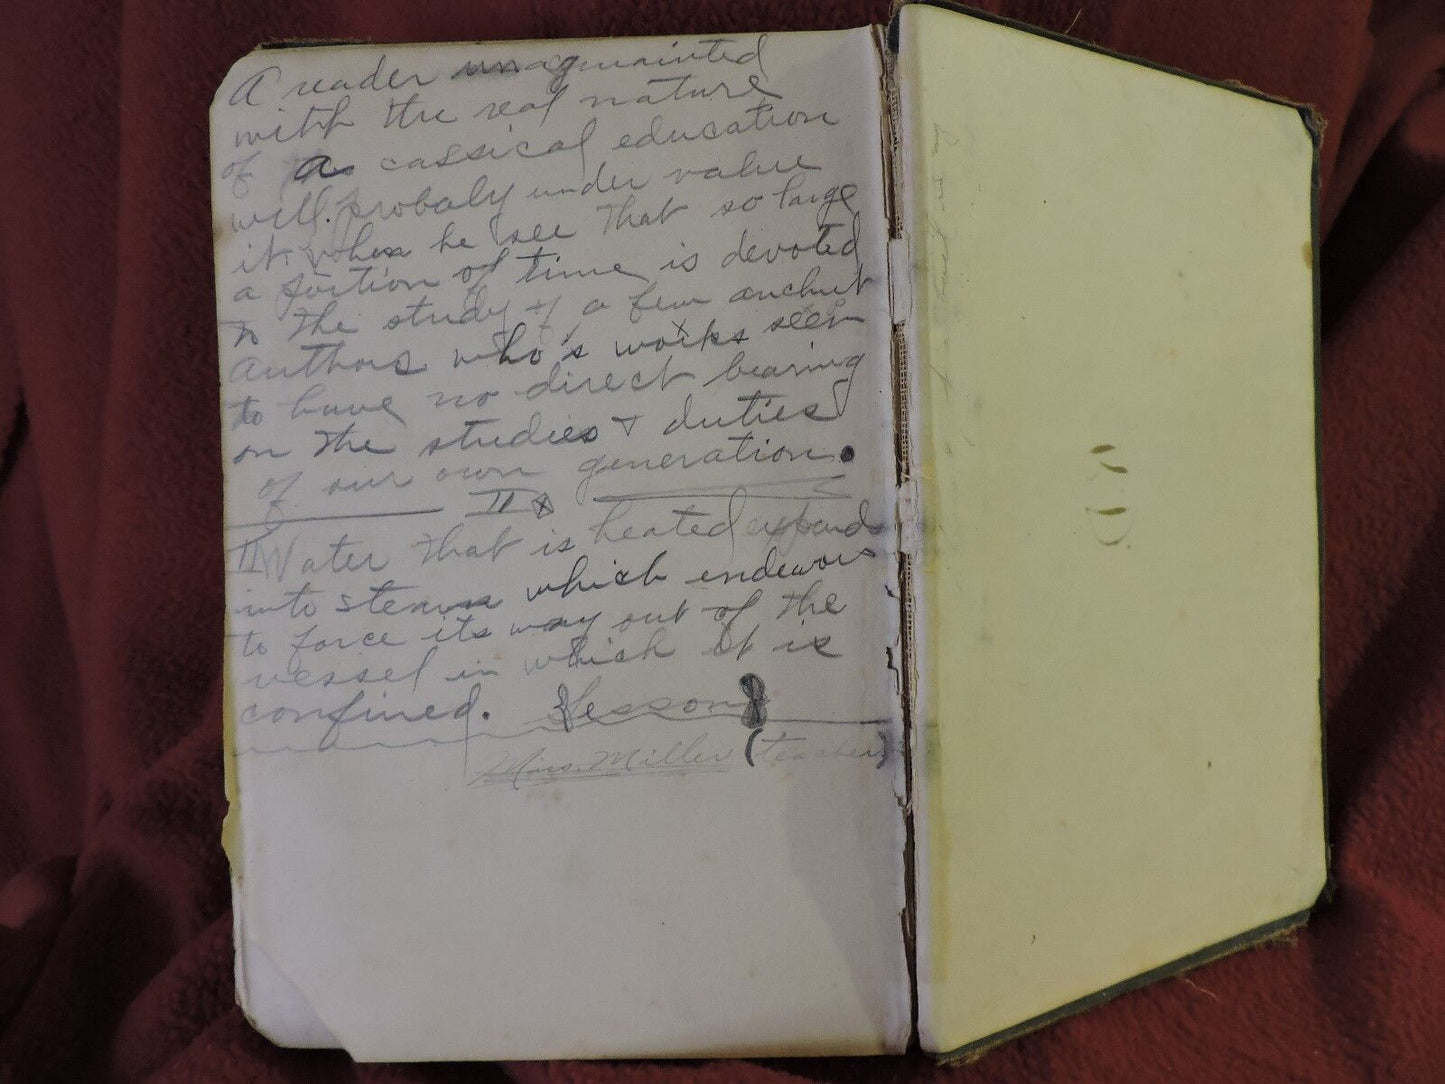 A reader unaquainted
with the real nature
of a cassical education
will probaly under value
it when he see that so large
a portion of time is devoted
to the study of a few anchut
authors who's works seem
to have no direct bearing
on the studies + duties
of our own generation.
II
II Water that is heated expands
into steam which endevors
to force its way out of the
vessel in which it is
confined. Lesson
Miss. Miller (teacher)